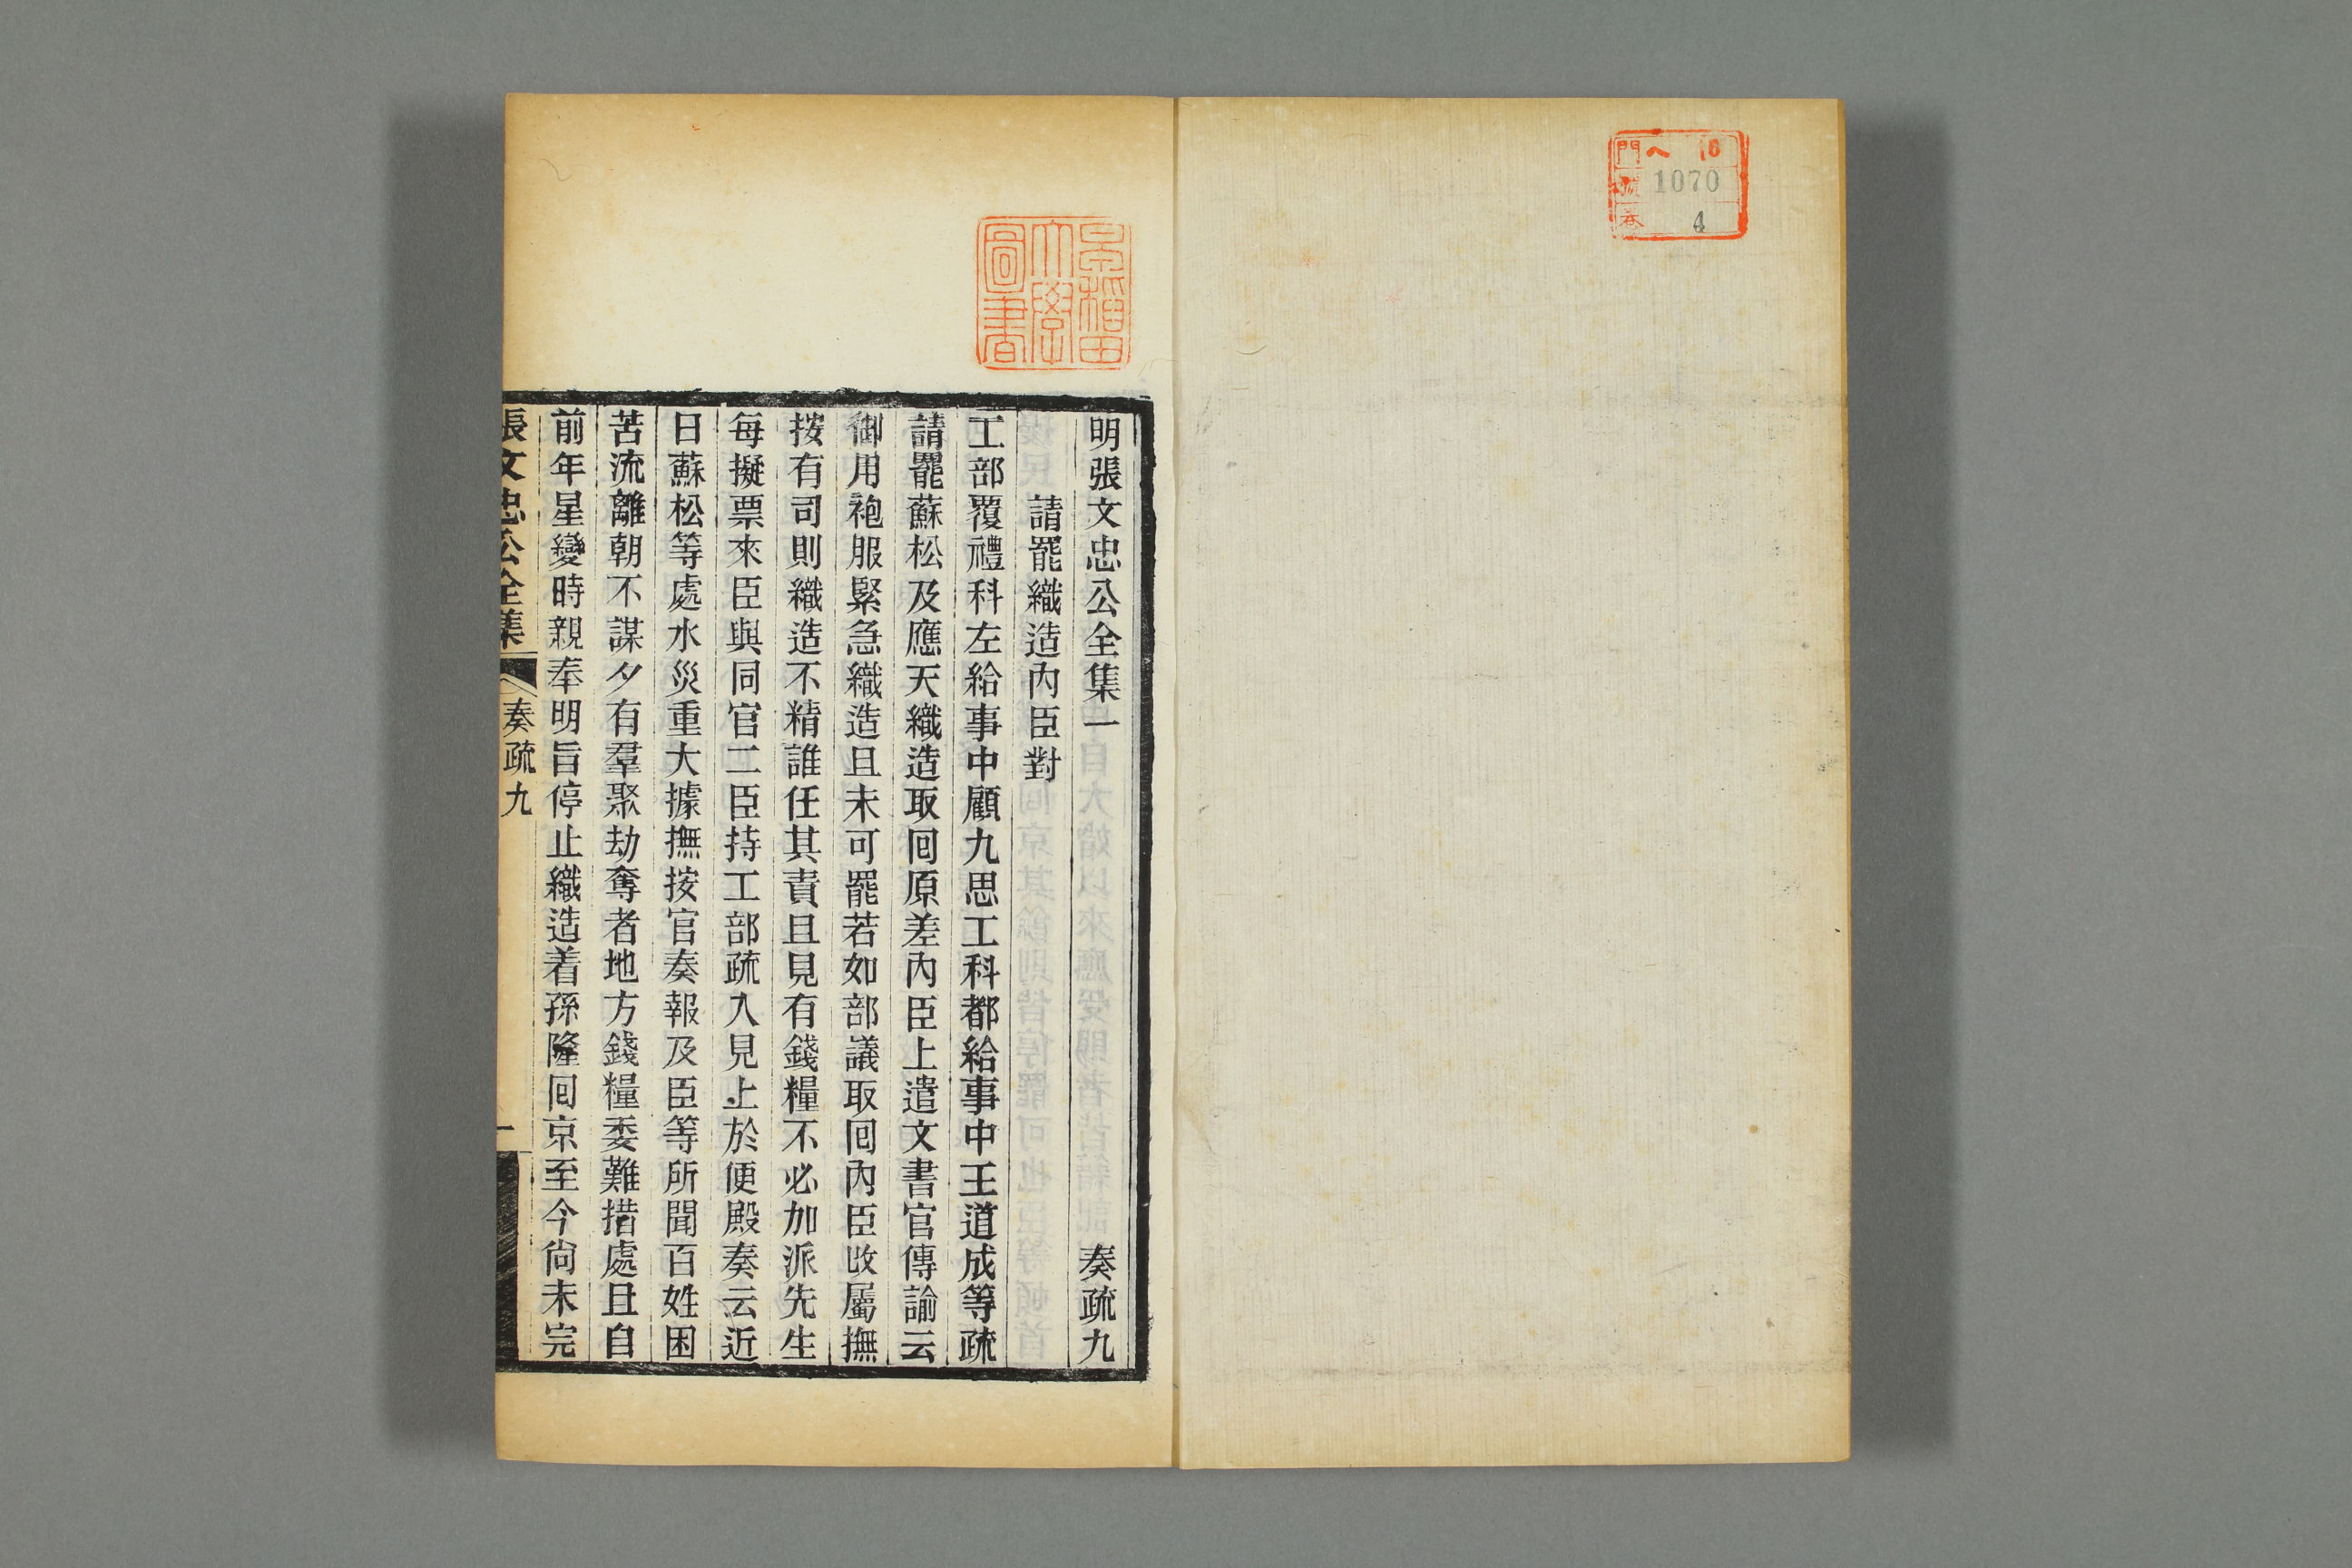 門 ヘ16
號 1070
卷 4
早稻田
大學
圖書
明張文忠公全集一 奏疏九
請罷織造內臣對
工部覆禮科左給事中顧九思工科都給事中王道成等疏
請罷蘇松及應天織造取囘原差內臣上遣文書官傳諭云
御用袍服緊急織造且未可罷若如部議取囘內臣收屬撫
按有司則織造不精誰任其責且見有錢糧不必加派先生
每擬票來臣與同官二臣持工部疏入見上於便殿奏云近
日蘇松等處水災重大據撫按官奏報及臣等所聞百姓困
苦流離朝不謀夕有羣聚劫奪者地方錢糧委難措處且自
前年星變時親奉明旨停止織造着孫隆囘京至今尙未完
張文忠公全集 奏疏九 一